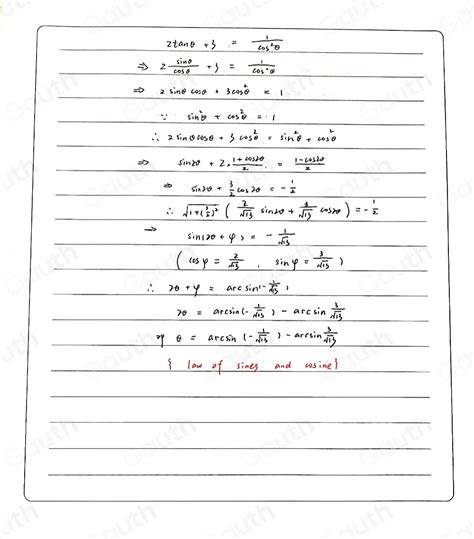 2tanθ + 3 = 1/cos²θ
⇒ 2 sinθ/cosθ + 3 = 1/cos²θ
⇒ 2 sinθ cosθ + 3cos²θ = 1
∵ sin²θ + cos²θ = 1
∴ 2 sinθcosθ + 3 cos²θ = sin²θ + cos²θ
⇒ sin2θ + 2 × (1+cos2θ)/2 = (1-cos2θ)/2
⇒ sin2θ + 3/2 cos2θ = -1/2
∴ √(1+(3/2)²) (2/√13 sin2θ + 3/√13 cos2θ) = -1/2
→ sin(2θ + φ) = -1/√13
(cosφ = 2/√13, sinφ = 3/√13)
∴ 2θ + φ = arcsin(-1/√13)
2θ = arcsin(-1/√13) - arcsin 3/√13
θ = arcsin(-1/√13) - arcsin 3/√13
{ law of sines and cosine}
Gauth